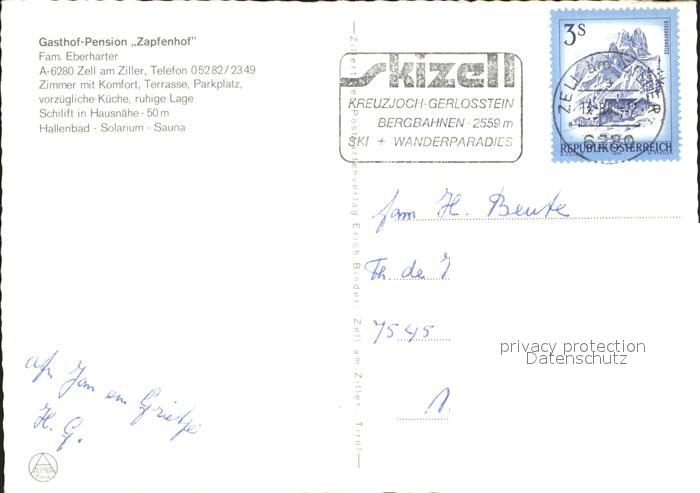 Gasthof-Pension „Zapfenhof"
Fam. Eberharter
A-6280 Zell am Ziller, Telefon 05282/2349
Zimmer mit Komfort, Terrasse, Parkplatz,
vorzügliche Küche, ruhige Lage
Schilift in Hausnähe - 50 m
Hallenbad - Solarium - Sauna
skizell
KREUZJOCH-GERLOSSTEIN
BERGBAHNEN - 2559 m
SKI + WANDERPARADIES
3 S
REPUBLIK ÖSTERREICH
ZELL AM ZILLER
6280
Postkartenverlag Erich Binder, Zell am Ziller, Tirol
fam H. Bente
Th de J
7545
privacy protection
Datenschutz
afz Jan en Grietje
H. G.